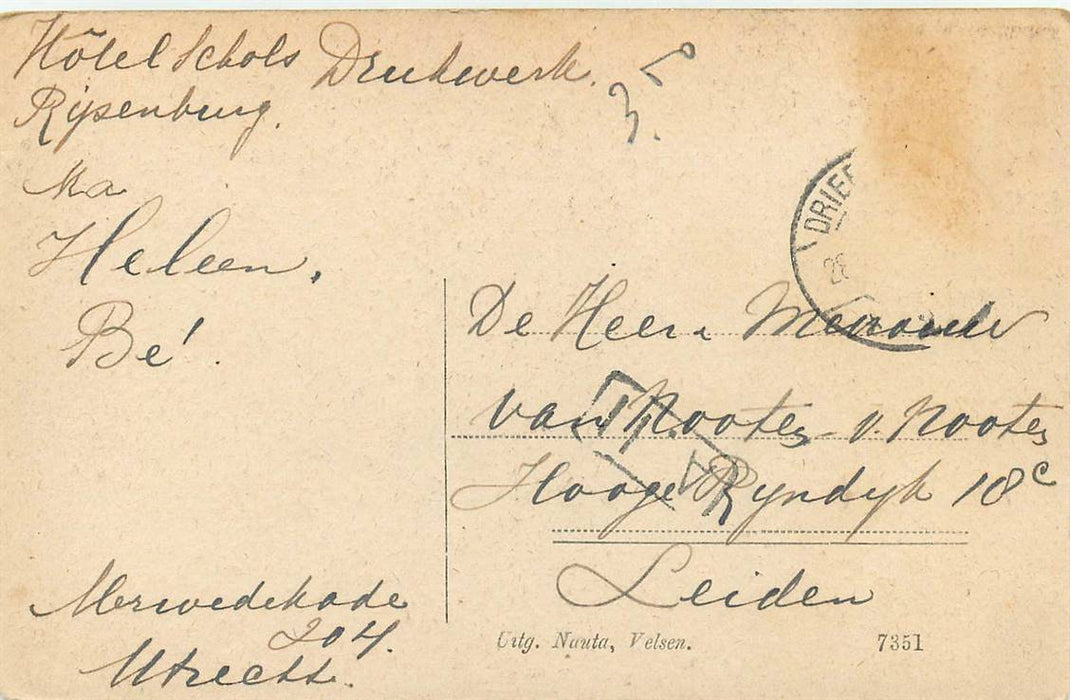 Hôtel Schols Drukwerk.
Rijsenburg.
Ma
Heleen.
Bé.
Merwedekade
204.
Utrecht.
3
DRIEB
28
De Heer Mevrouw
van Nooten v. Nooten
Hooge Ryndyk 18c
Leiden
T
Uitg. Nauta, Velsen.
7351